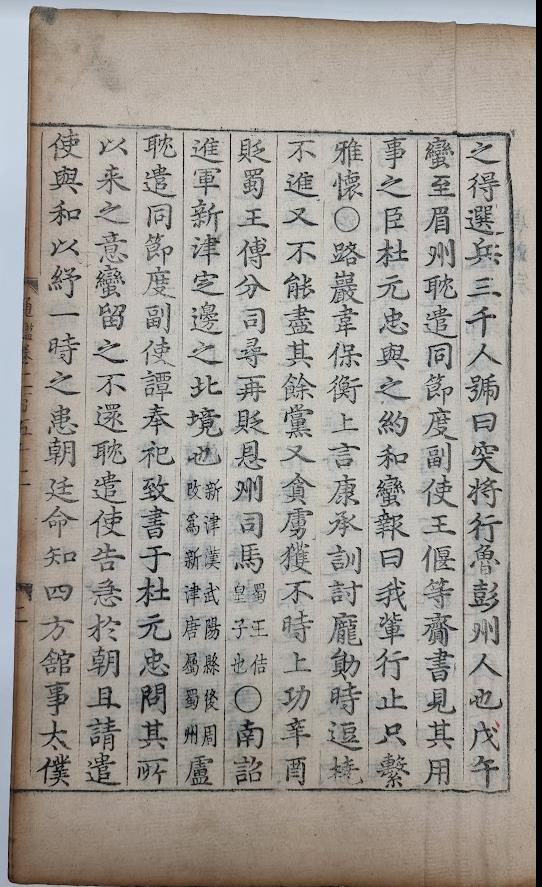 之得選兵三千人號曰突將行魯彭州人也戊午
蠻至眉州耽遣同節度副使王偃等齎書見其用
事之臣杜元忠與之約和蠻報曰我軰行止只繫
雅懷○路巖韋保衡上言康承訓討龐勛時逗撓
不進又不能盡其餘黨又貪虜獲不時上功辛酉
貶蜀王傅分司尋再貶恩州司馬蜀王佶皇子也○南詔
進軍新津定邊之北境也新津漢武陽縣後周改爲新津唐屬蜀州盧
耽遣同節度副使譚奉祀致書于杜元忠問其所
以来之意蠻留之不還耽遣使告急於朝且請遣
使與和以紓一時之患朝廷命知四方舘事太僕